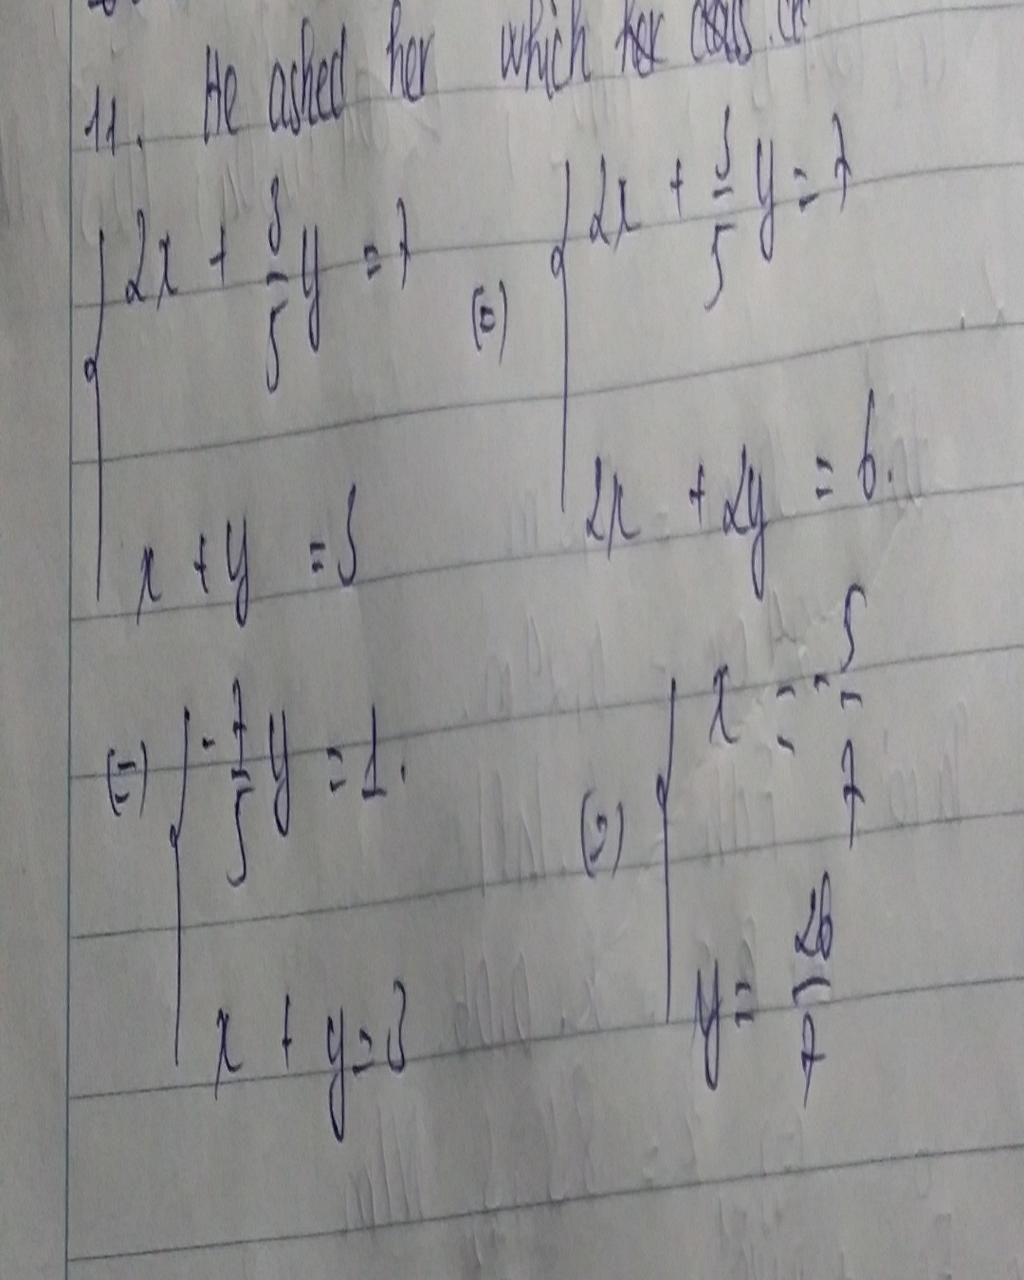 11. He asked her which her class
{ 2x + 3/5 y = 7 (=) { 2x + 3/5 y = 7
x + y = 3 2x + 2y = 6.
(=) { -7/5 y = 1. (=) { x = -5/7
x + y = 3 y = 26/7